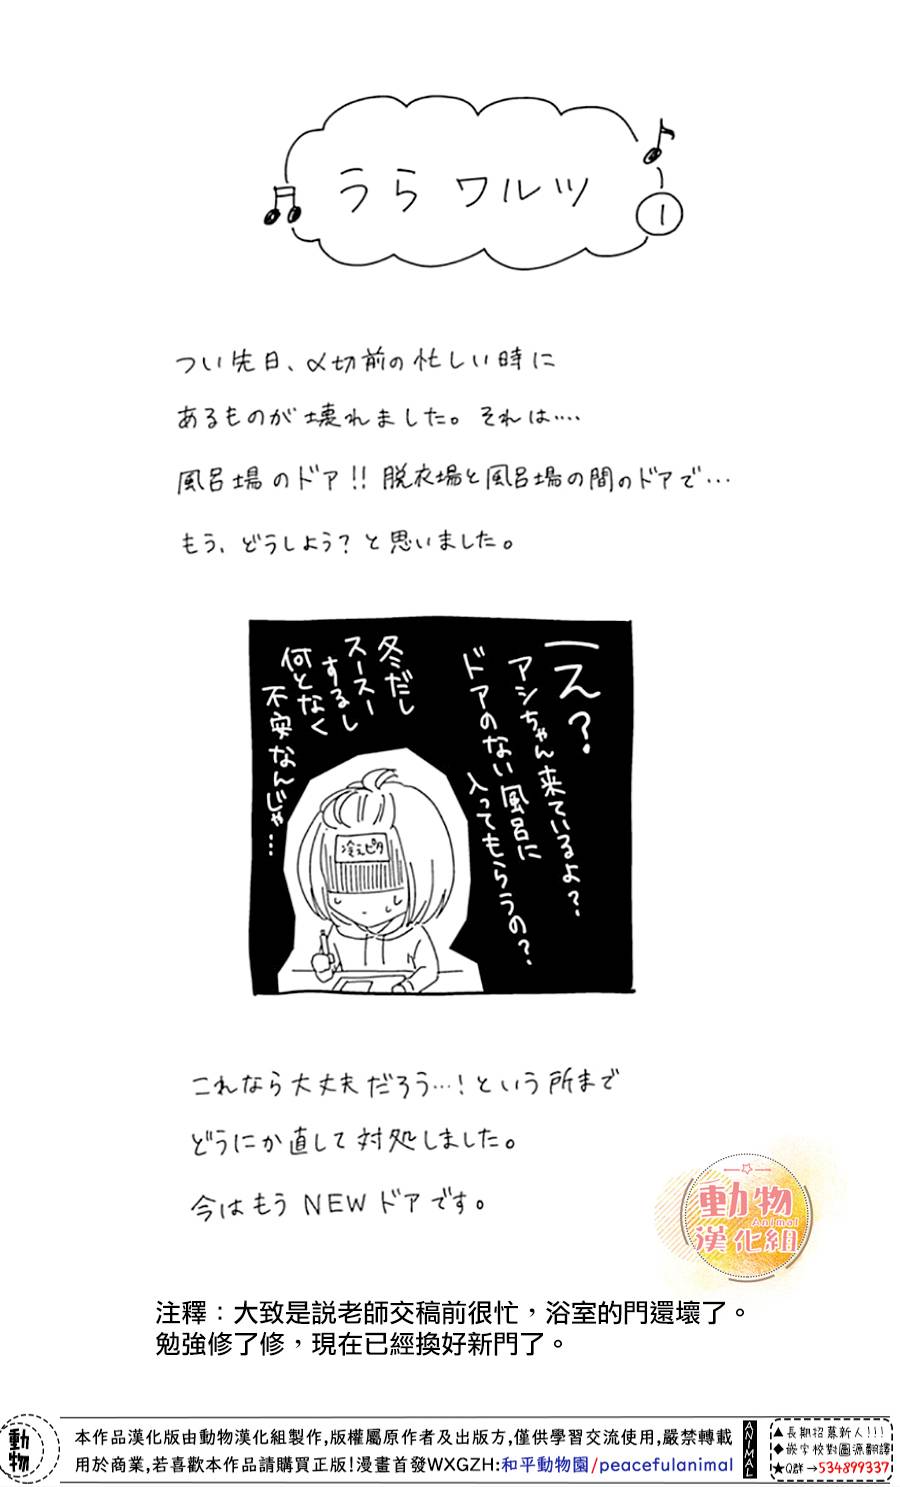 うらワルツ
1
つい先日、〆切前の忙しい時に
あるものが壊れました。それは‥‥
風呂場のドア!!脱衣場と風呂場の間のドアで…
もう、どうしよう?と思いました。
え?
アシちゃん来ているよ?
ドアのない風呂に
入ってもらうの?
冬だし
スースー
するし
何となく
不安なんじゃ…
冷えピタ
N
これなら大丈夫だろう…!という所まで
どうにか直して対処しました。
今はもうNEWドアです。
動物
Animal
漢化組
注釋：大致是説老師交稿前很忙，浴室的門還壞了。
勉強修了修，現在已經換好新門了。
動物
本作品漢化版由動物漢化組製作,版權屬原作者及出版方,僅供學習交流使用,嚴禁轉載
用於商業,若喜歡本作品請購買正版!漫畫首發WXGZH:和平動物園/peacefulanimal
ANIMAL
▲長期招募新人!!!
◆嵌字校對圖源翻譯
★Q群→534899337